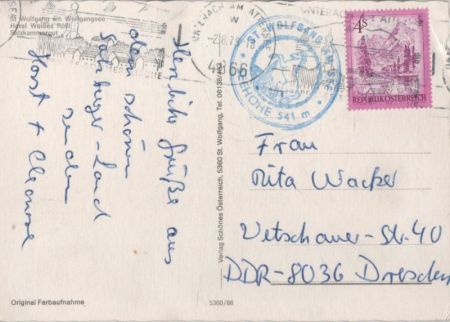 St. Wolfgang am Wolfgangsee
Hotel Weißes Rößl
Salzkammergut
Herzliche Grüße aus
dem schönen
Salzburger-Land
senden
Horst +
UNTERACH AM ATTERSEE
-2.8.79
4866
ST. WOLFGANG AM SEE
SEEHÖHE 541 m
4S
REPUBLIK ÖSTERREICH
Frau
Rita Wacker
Vetschauer-Str. 40
DDR-8036 Dresden
Verlag Schönes Österreich, 5360 St. Wolfgang, Tel. 06138/
Original Farbaufnahme
5360/86